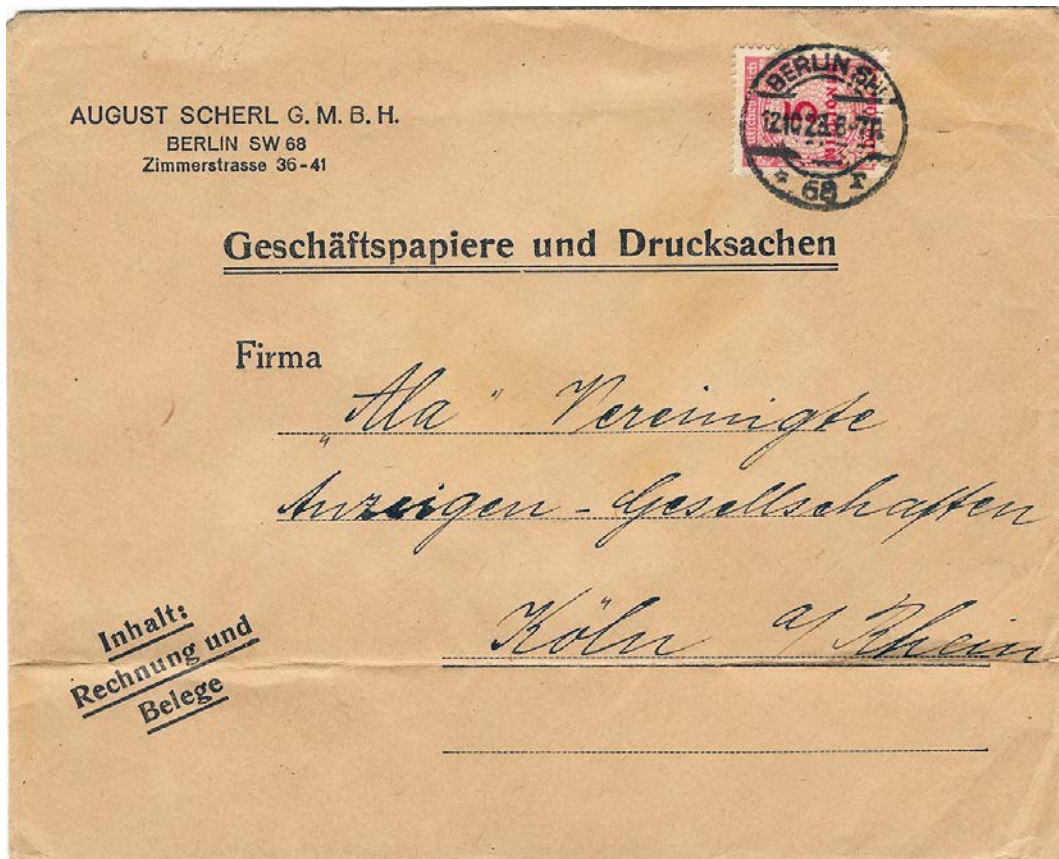 AUGUST SCHERL G. M. B. H.
BERLIN SW 68
Zimmerstrasse 36-41
BERLIN SW
12.10.23. 6-7
68
Geschäftspapiere und Drucksachen
Firma
„Ala" Vereinigte
Anzeigen-Gesellschaften
Köln a/Rhein
Inhalt:
Rechnung und
Belege